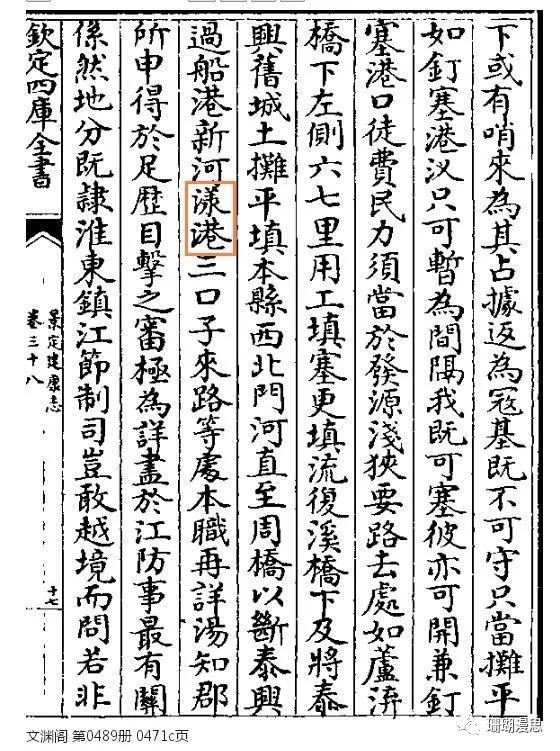 下或有哨來為其占據返為冦基既不可守只當攤平
如釘塞港汊只可暫為間隔我既可塞彼亦可開兼釘
塞港口徒費民力須當於發源淺狹要路去處如蘆洴
橋下左側六七里用工填塞更填流復溪橋下及將泰
興舊城土攤平填本縣西北門河直至周橋以斷泰興
過船港新河漾港三口子來路等處本職再詳湯知郡
所申得於足歴目擊之審極為詳盡於江防事最有關
係然地分既隷淮東鎮江節制司豈敢越境而問若非
欽定四庫全書
景定建康志
卷三十八
十七
文渊阁 第0489册 0471c页
珊瑚漫思